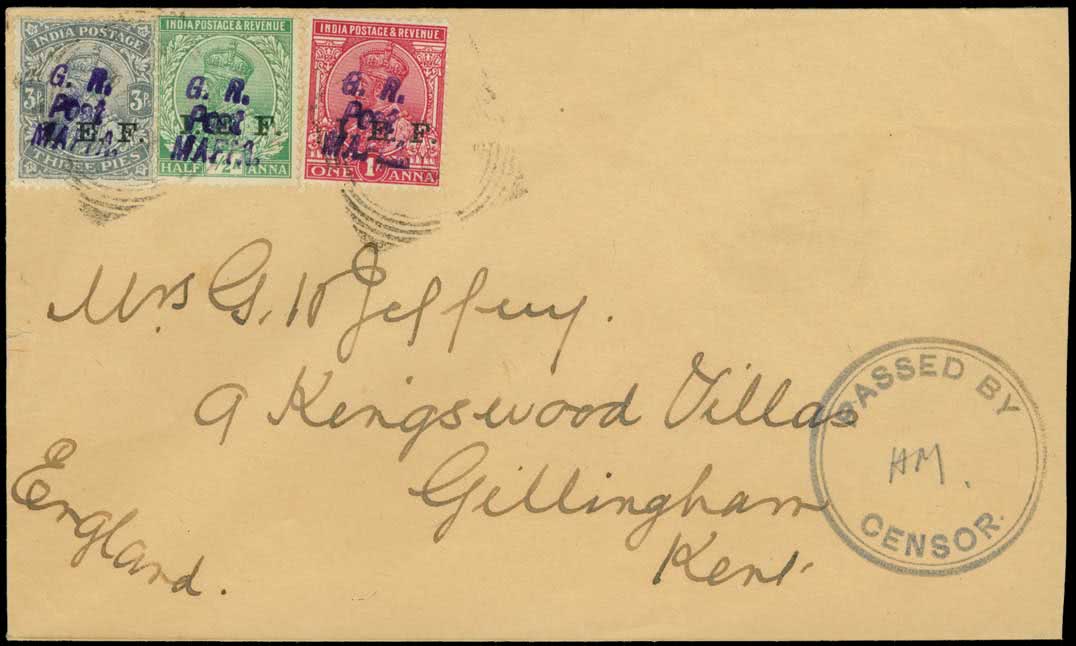 INDIA POSTAGE
3P. 3P.
THREE PIES
G. R.
Post
MAFIA.
I. E. F.
INDIA POSTAGE & REVENUE
HALF 1/2 ANNA
G. R.
Post
MAFIA.
I. E. F.
INDIA POSTAGE & REVENUE
ONE 1A ANNA
G. R.
Post
I. E. F.
Mrs G. W Jeffery.
9 Kingswood Villas
Gillingham
Kent.
England.
PASSED BY
HM.
CENSOR.